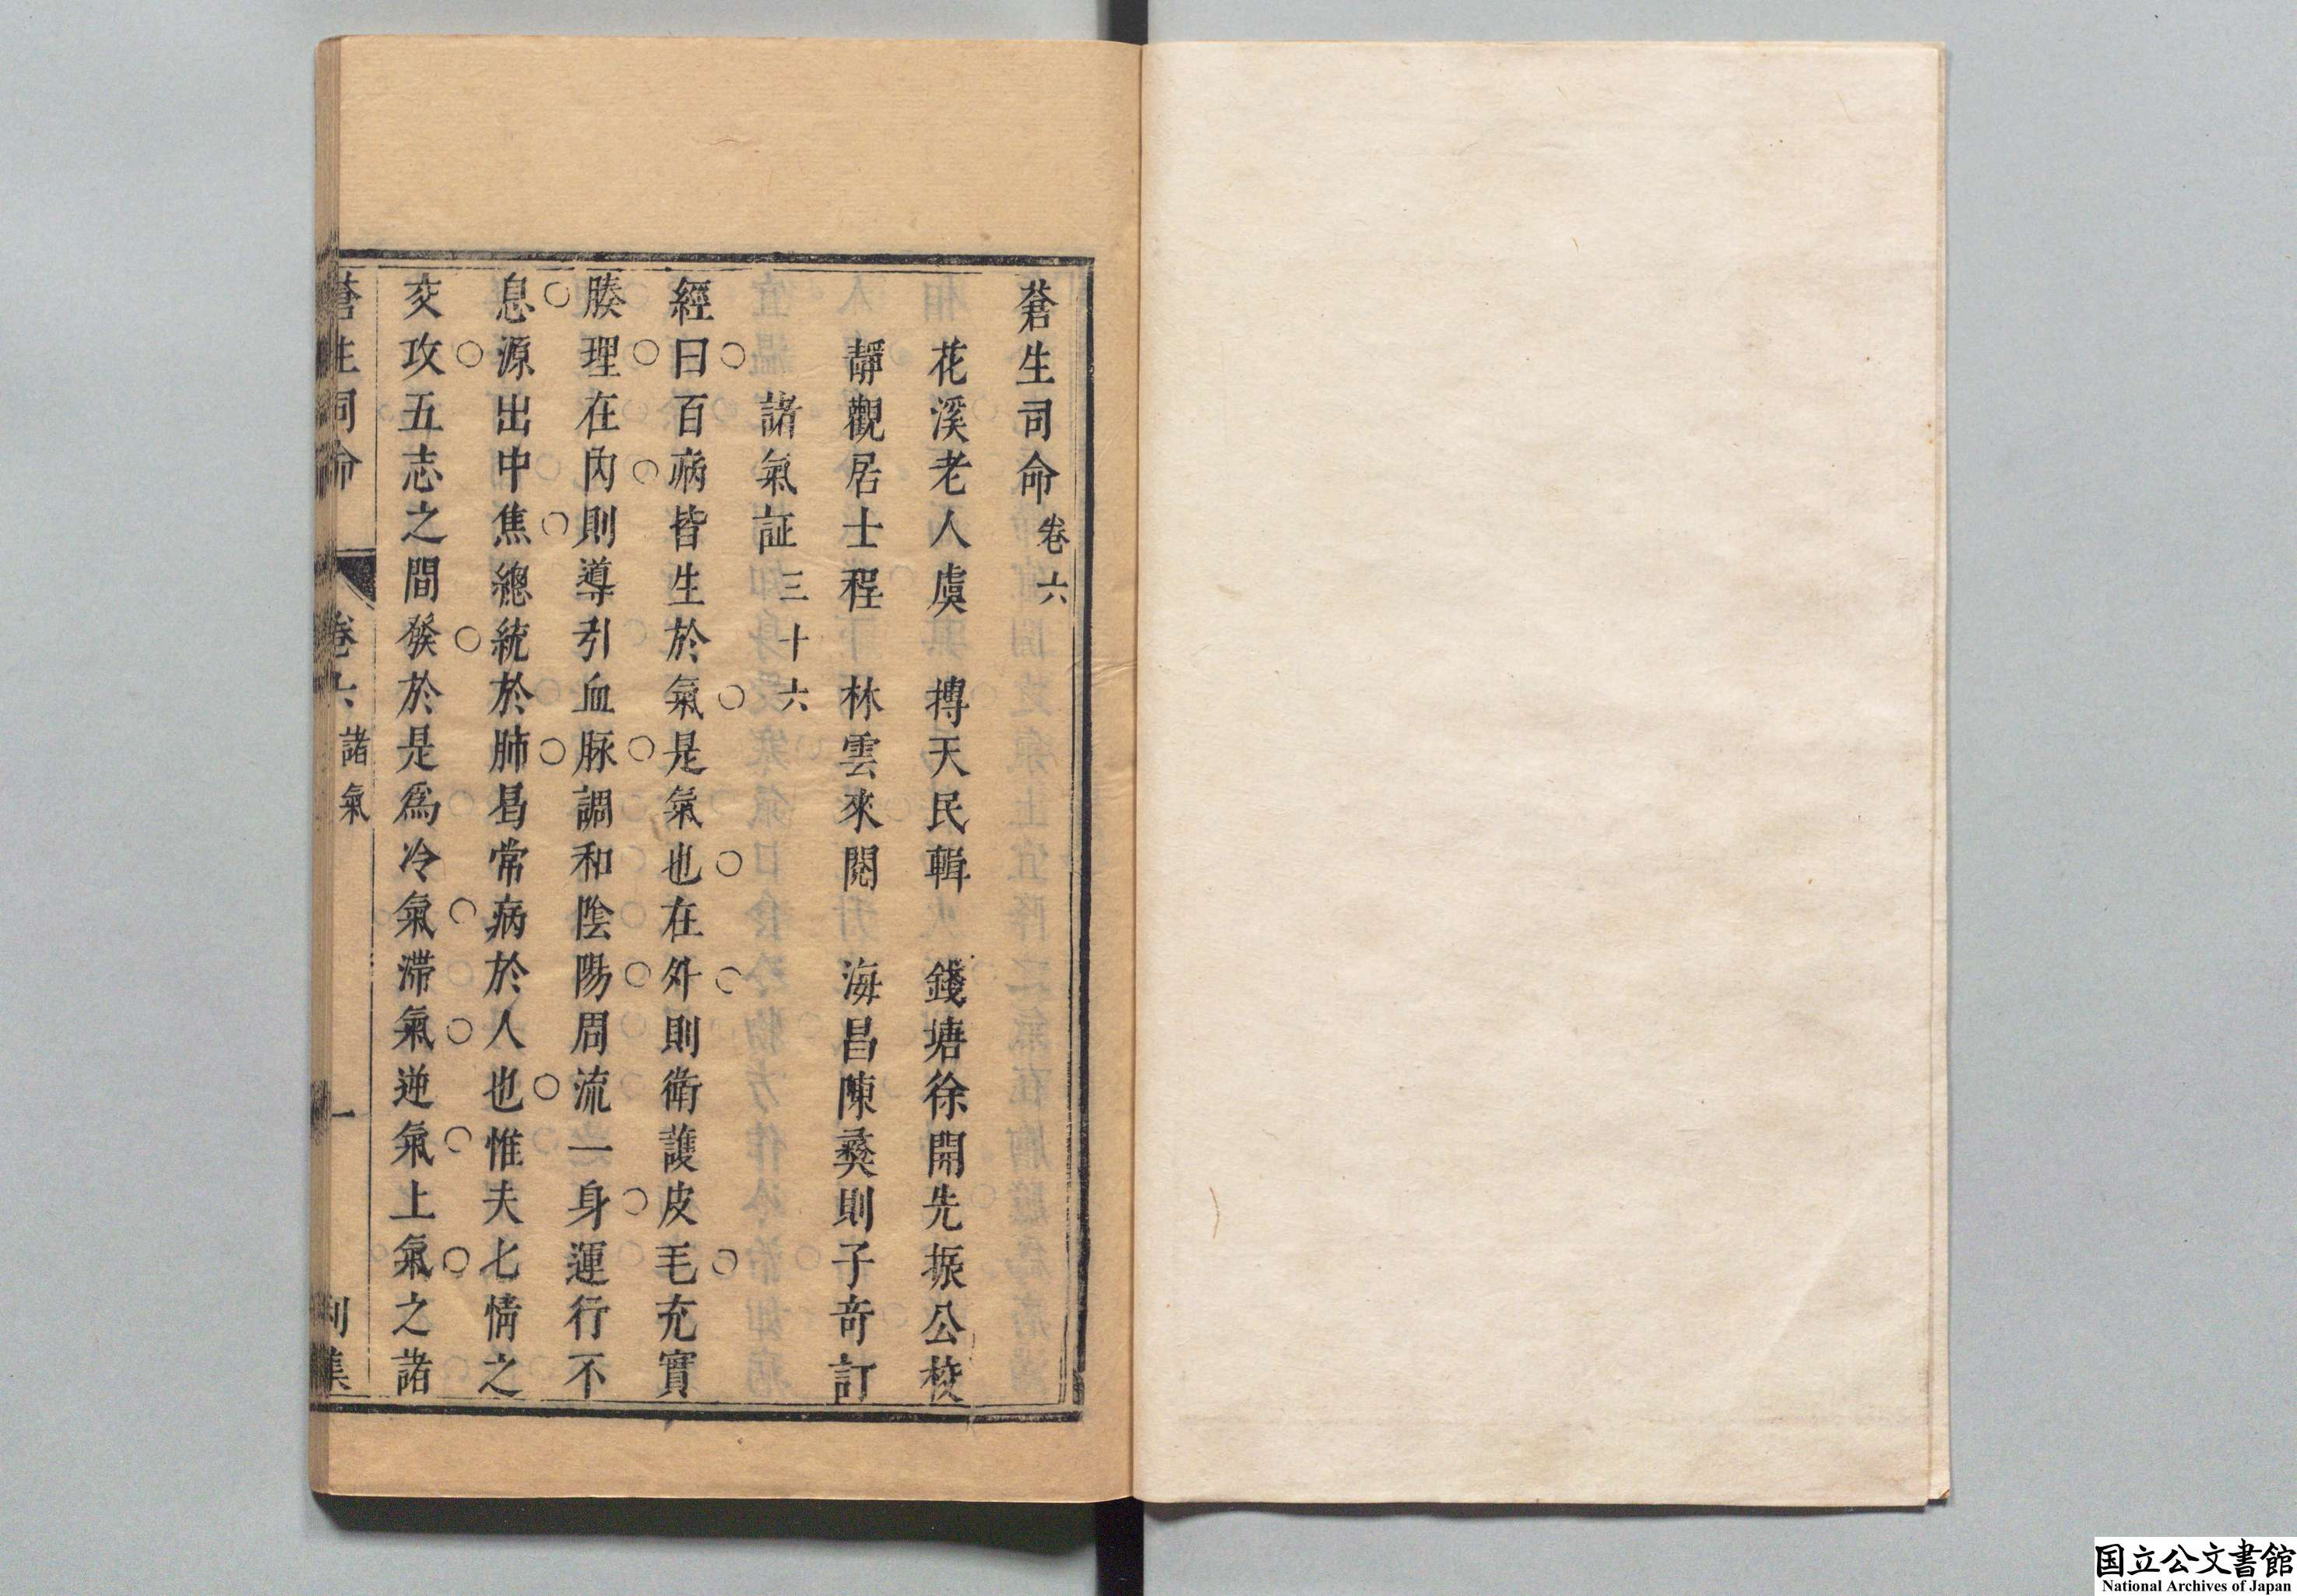 蒼生司命卷六
花溪老人虞 摶天民輯 錢塘徐開先振公校
靜觀居士程 林雲來閱 海昌陳彝則子奇訂
諸氣証三十六
經曰百病皆生於氣是氣也在外則衛護皮毛充實
腠理在內則導引血脉調和陰陽周流一身運行不
息源出中焦總統於肺曷常病於人也惟夫七情之
交攻五志之間發於是爲冷氣滯氣逆氣上氣之諸
蒼生司命 卷六 諸氣 一 利集
国立公文書館
National Archives of Japan